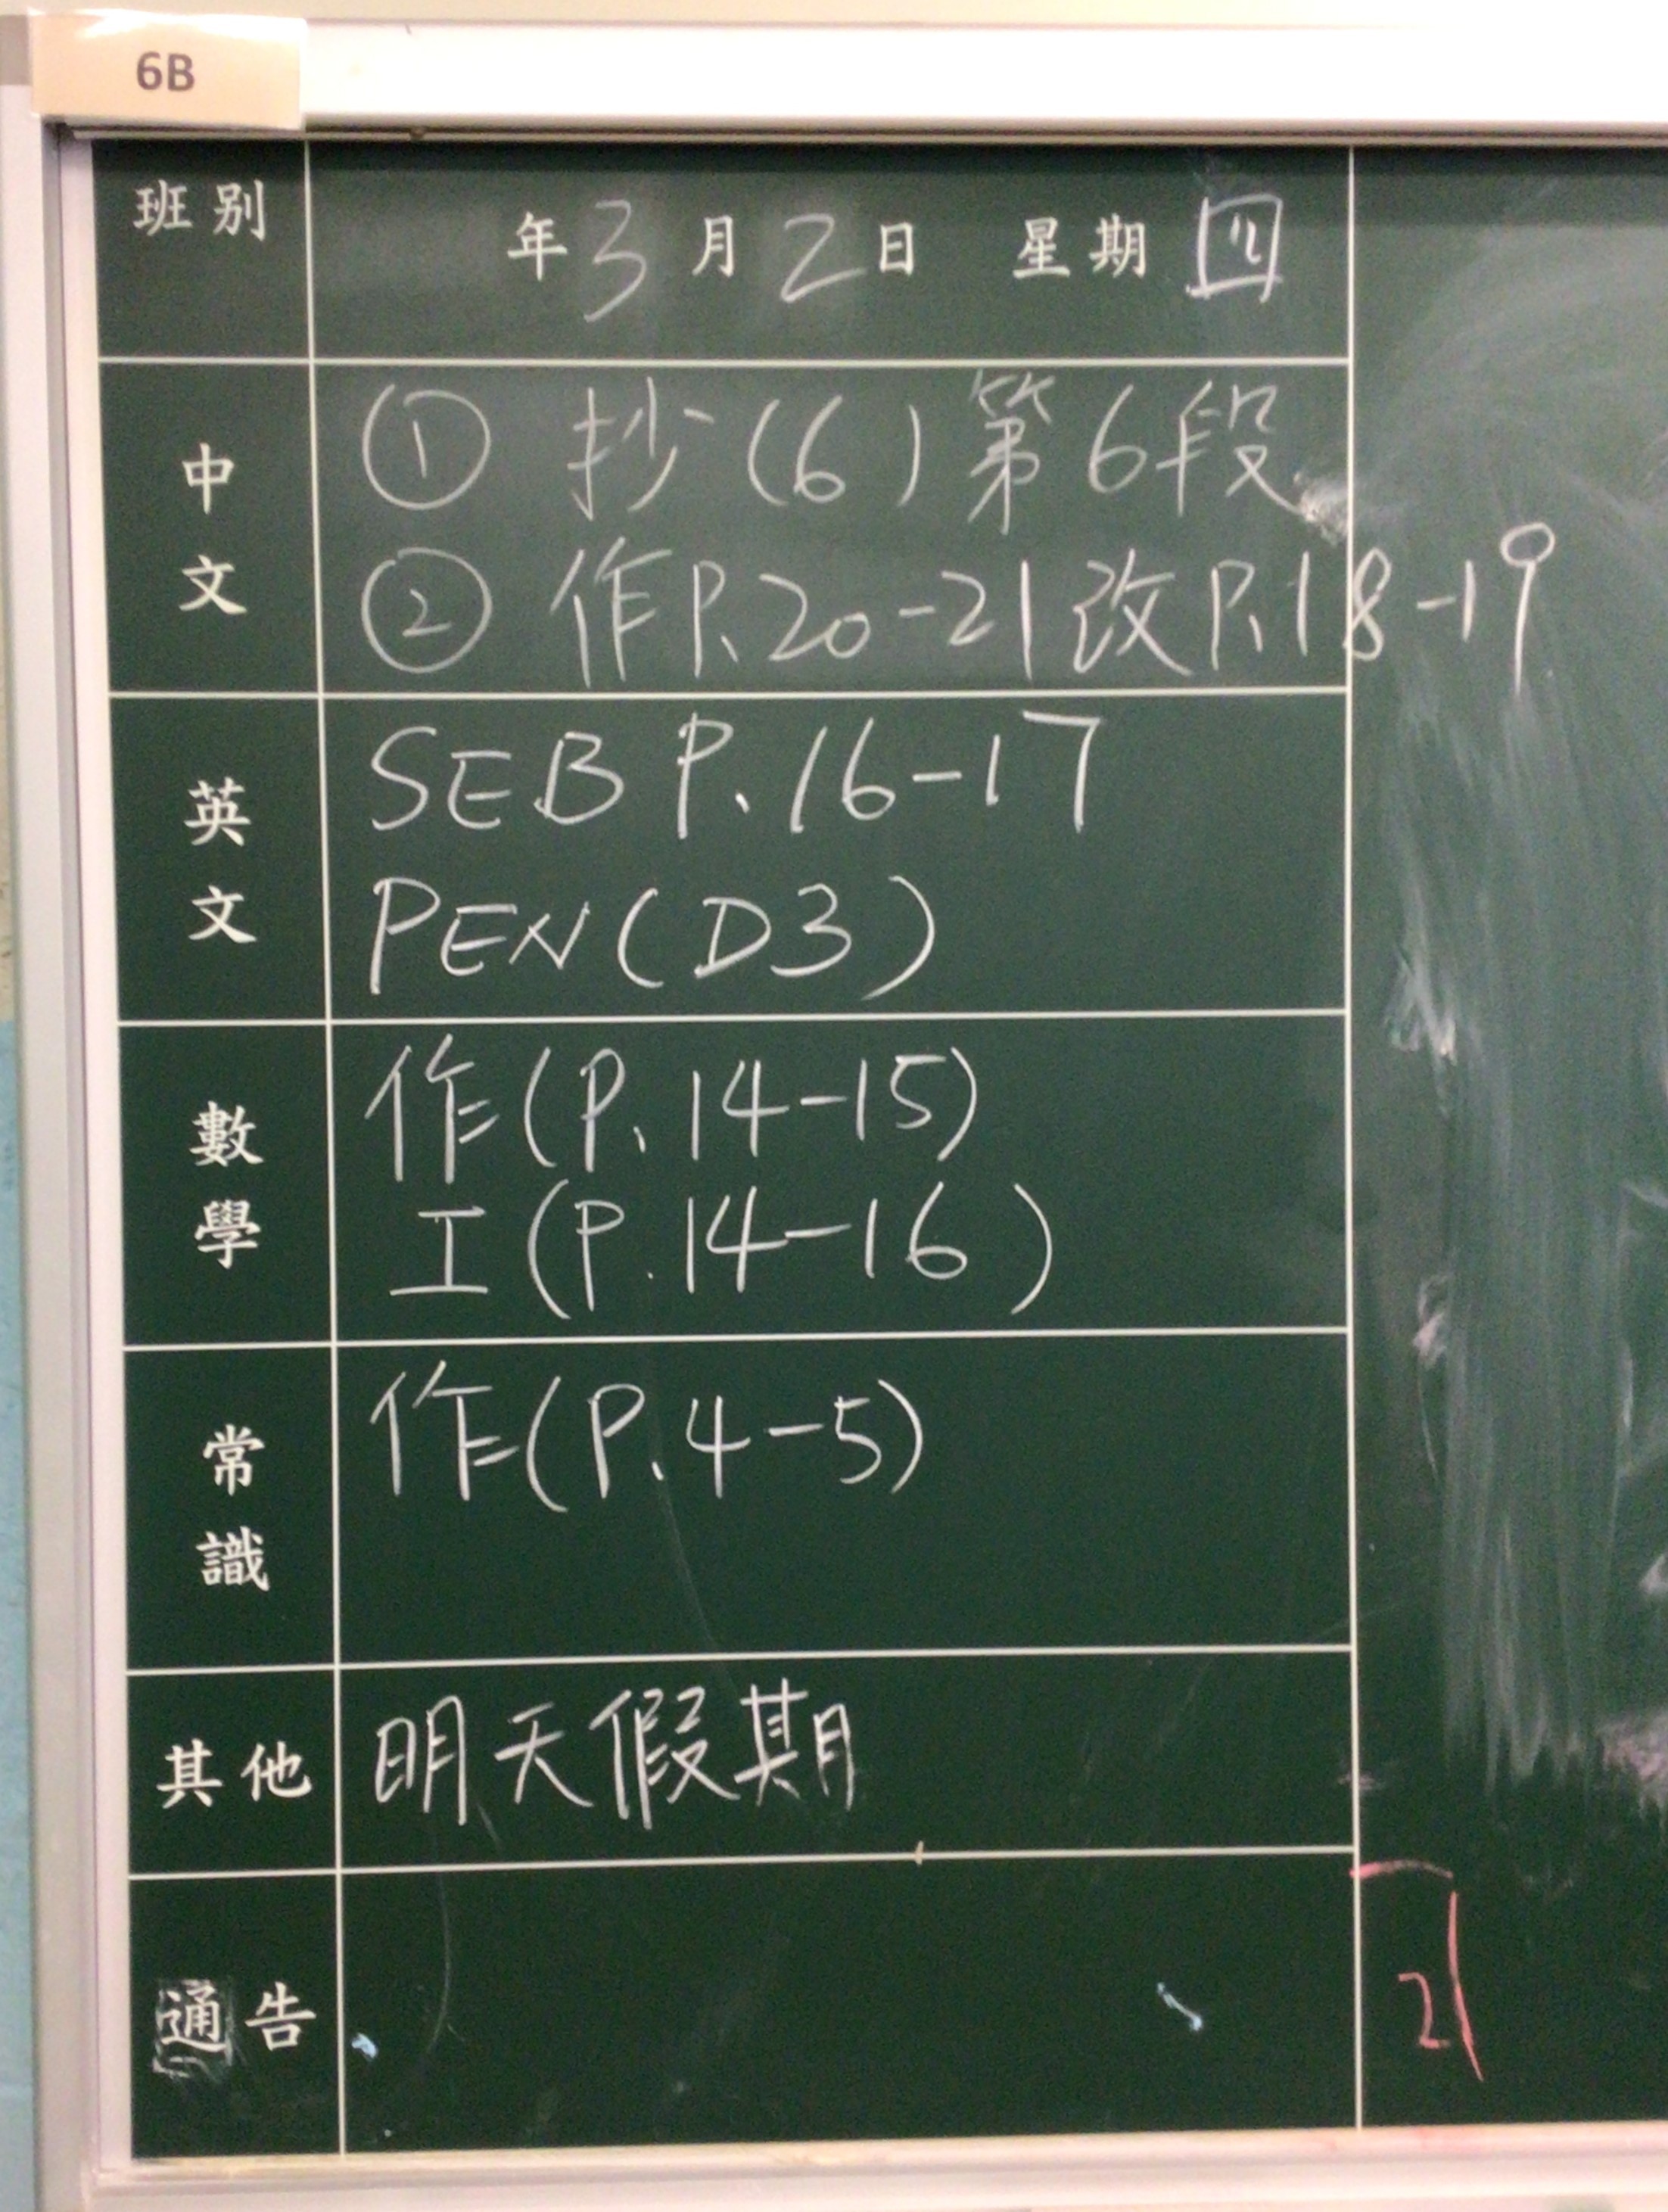 6B
班別 年3月2日 星期四
中文
① 抄(6)第6段
② 作P.20-21改P.18-19
英文
SEB P.16-17
PEN(D3)
數學
作(P.14-15)
工(P.14-16)
常識
作(P.4-5)
其他 明天假期
通告